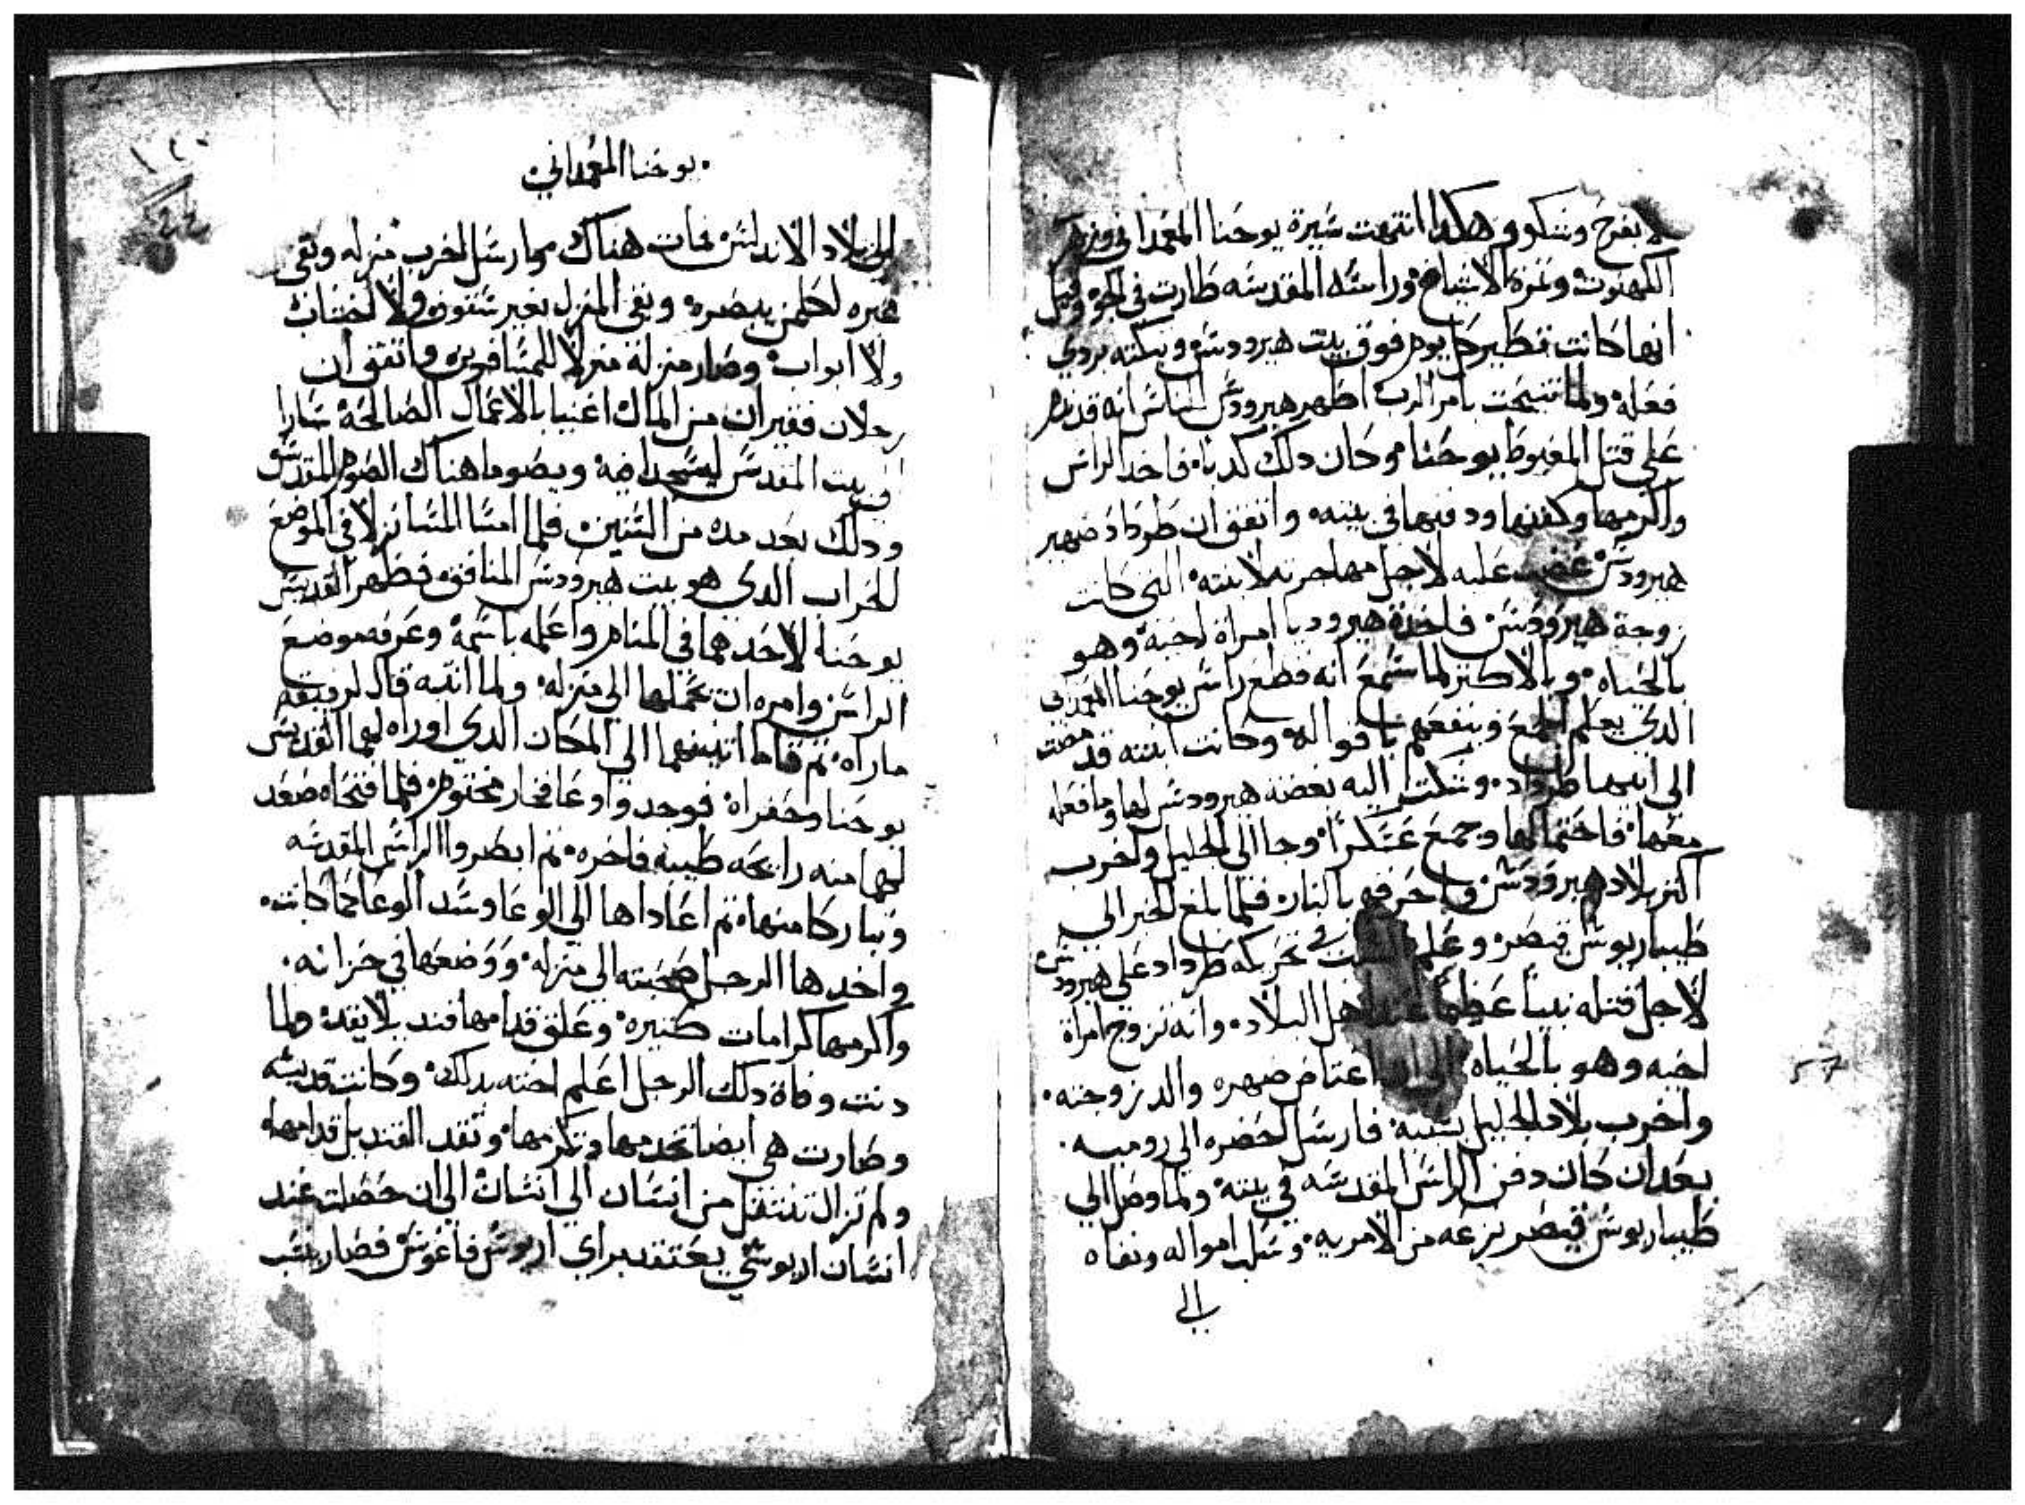 لا يفرح وشكوو هكدا انتهت سيرة يوحنا المعمداني وزهر
الكهنوت وثمرة الاشباخ وراسه المقدسه طارت في الجو وقيل
انها كانت تطير كل يوم فوق بيت هيرودس وتبكته بردي
فعله ولما تنيحت بامر الرب اظهر هيرودس للناس انه قد ندم
على قتل المغبوط يوحنا وكان دلك كدبا فاخد الراس
واكرمها وكفنها ودفنها في بيته واتفق ان طرداد صهير
هيرودس غضب عليه لاجل مهاجرته لابنته التي كانت
زوجة هيرودس فاخده هيروديا امراة اخيه وهو
بالحياه وبالاكتر لما سمع انه قطع راس يوحنا المعمداني
الدي يعلم الجمع وينفعهم باقواله وكانت ابنته قد مضت
الى ابيها طرداد وشكت اليه بغضة هيرودس لها وما فعله
معها فاحتمالها وجمع عسكراً وجا الى الجليل واخرب
اكتر بلاد هيرودس واحرقه بالنار فلما بلغ الخبر الى
طيباريوس قيصر وعلم السبب في تحريكه طرداد على هيرودس
لاجل قتله نبياً عظيماً عند اهل البلاد وانه تزوج امراة
اخيه وهو بالحياه الى ان اغتاض صهره والد زوجته
واخرب بلاد الجليل بسببه فارسل احضره الى روميه
بعد ان كان دفن الراس المقدسه في بيته ولما وصل الي
طيباريوس قيصر نزعه من الامريه وسلب امواله ونفاه
الي
يوحنا المعمداني
١٤٠
الى بلاد الاندلس فمات هناك وارسل اخرب منزله وبقى
عبره لكلمن يبصره وبقي المنزل بغير سقوف ولا اخشاب
ولا ابواب وصار منزله منزلاً للمسافرين واتفق ان
رجلان فقيران من المال اغنيا بالاعمال الصالحة سارا
الى بيت المقدس ليسجدا فيه ويصوما هناك الصوم المقدس
ودلك بعد مده من السنين فلما امسا المسا نزلا في الموضع
الخراب الدي هو بيت هيرودس المنافق فظهر القديس
يوحنا لاحدهما في المنام واعلمه باسمه وعرفه موضع
الراس وامره ان يحملها الى منزله ولما انتبه قال لرفيقه
ماراه تم قاما اتينهما الى المكان الدي اوراه لهما القديس
يوحنا وحفراه فوجدوا وعا فخار مختوم فلما فتحاه صعد
لهما منه رايحه طيبه فاخره تم ابصروا الراس المقدسه
وتباركا منها تم اعاداها الى الوعا وسد الوعا كما كانت
واخدها الرجل صحبته الى منزله ووضعها في خزانه
واكرمها كرامات كتيره وعلق قدامها قنديلا يقد ولما
دنت وفاة دلك الرجل اعلم اخته بدلك وكانت قديسه
وصارت هي ايضا تخدمها وتكرمها وتقد القنديل قدامها
ولم تزال تنتقل من انسان الي انسان الى ان حصلت عند
انسان اريوسي يعتقد براي اريوس فاغوس فصار ينسب